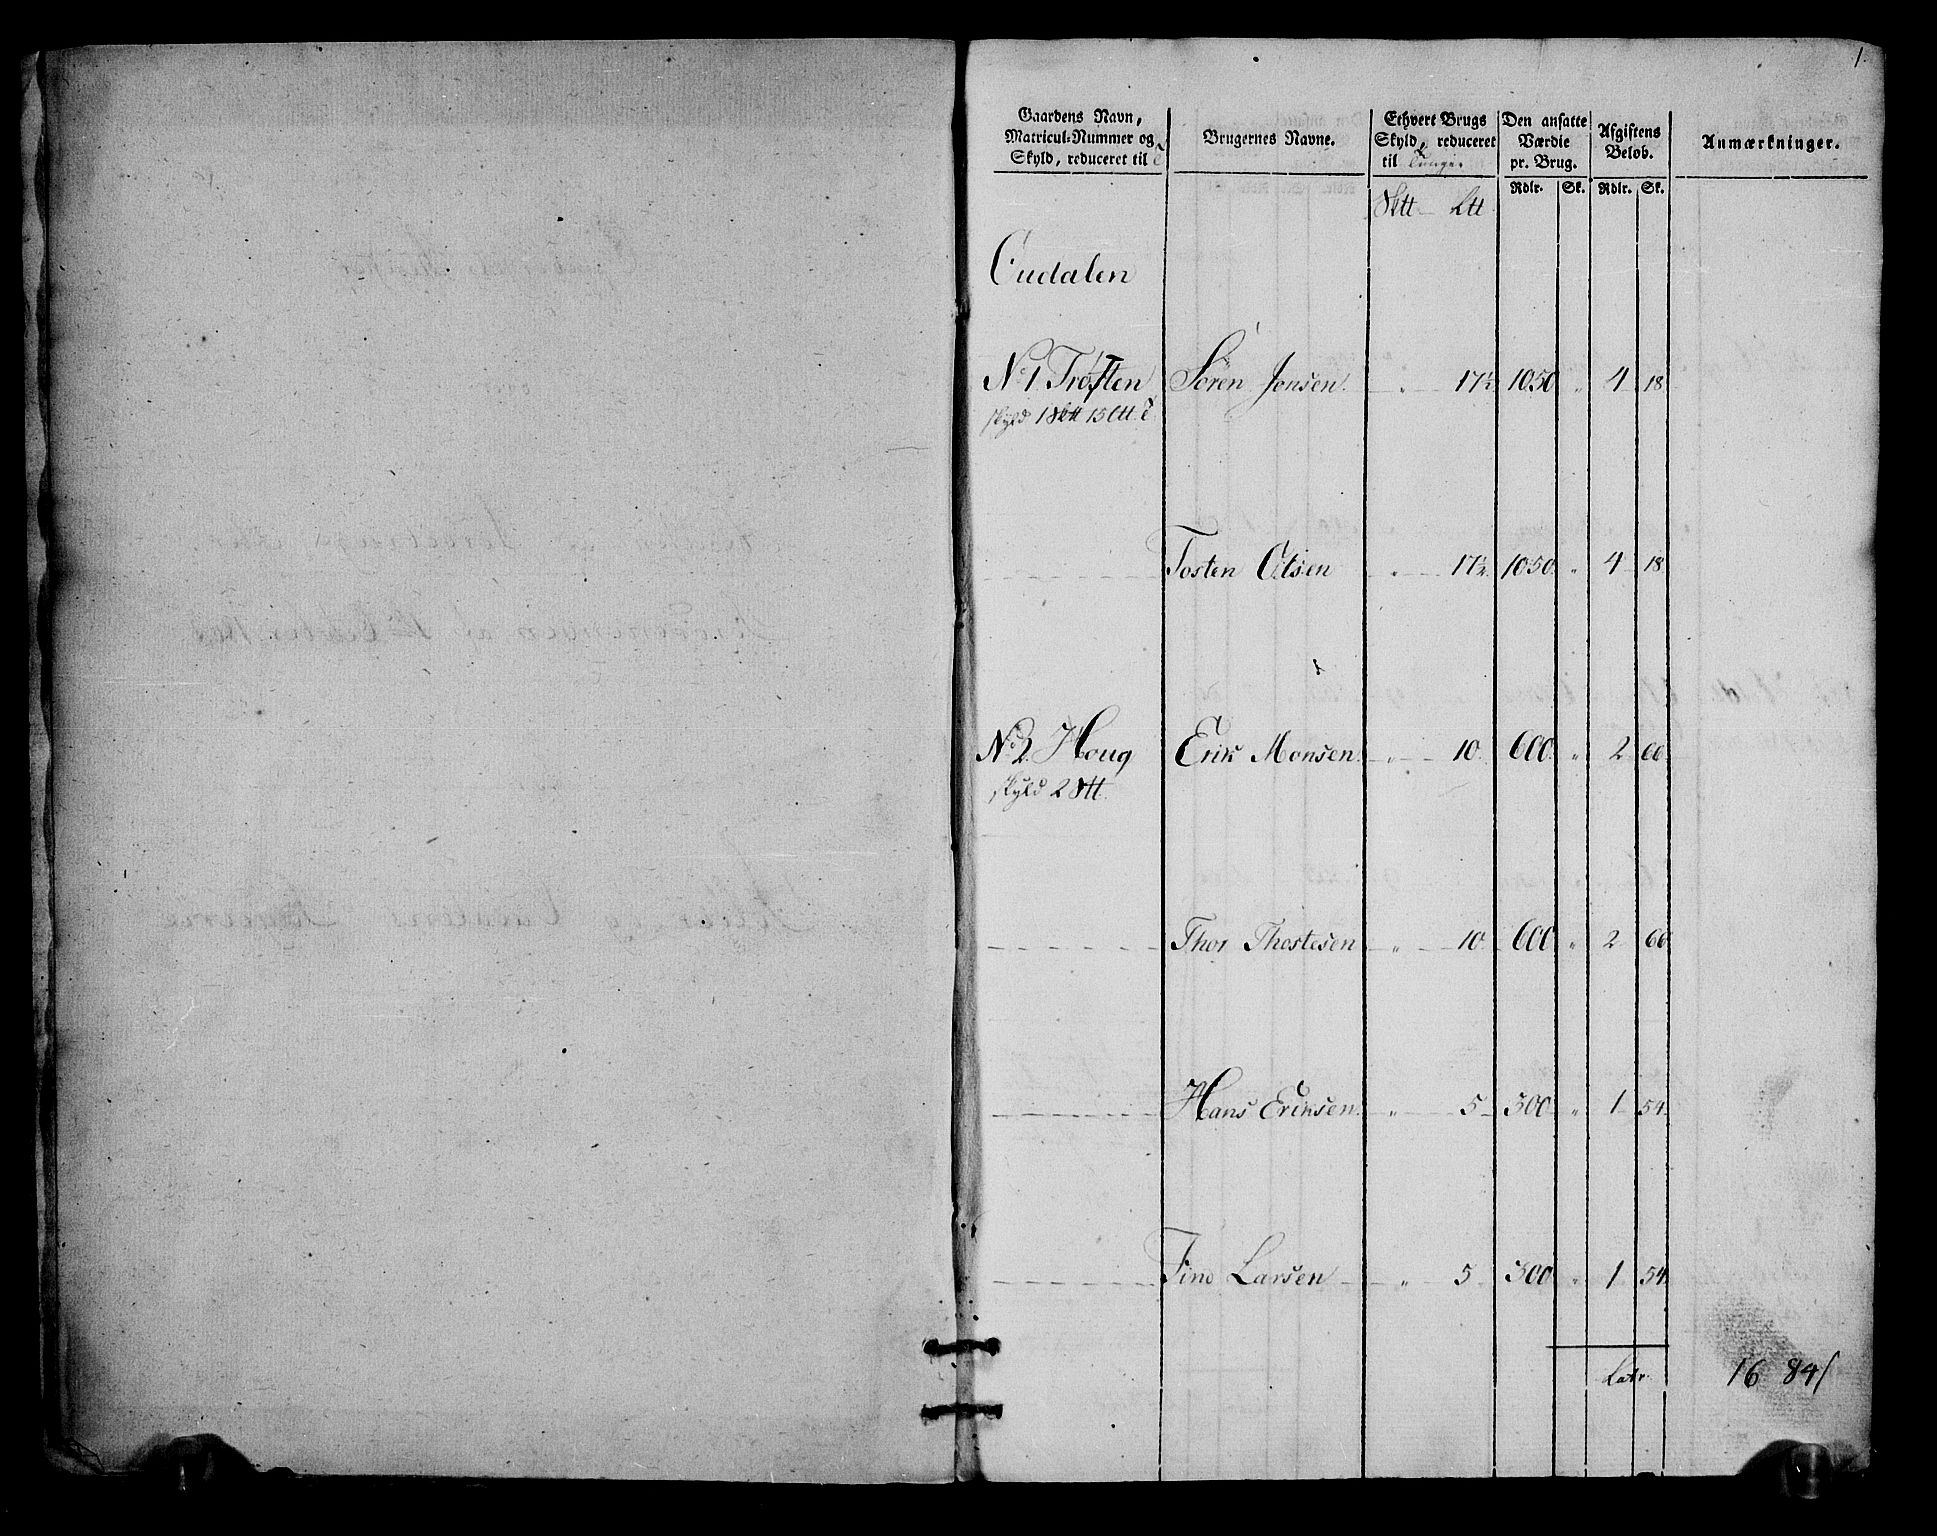 1.
Gaardens Navn, Matricul-Nummer og Skyld, reduceret til
Brugernes Navne.
Ethvert Brugs Skyld, reduceret til Tunge
Den ansatte Værdie pr. Brug.
Afgiftens Beløb.
Anmærkninger.
Rdlr. Sk. Rdlr. Sk.
Sktt Ltt
Oudalen
No 1 Trøften Sören Jensen. " 17½ 1050 " 4 18
skyld 1 Sktt 15 Ltt
Tosten Olsen " 17½ 1050 " 4 18
No 2 Houg Erik Monsen " 10 600 " 2 66
skyld 2 Stt
Thor Thostesen " 10 600 " 2 66
Hans Eriksen " 5 300 " 1 54
Find Larsen " 5 300 " 1 54
Latr. 16 84